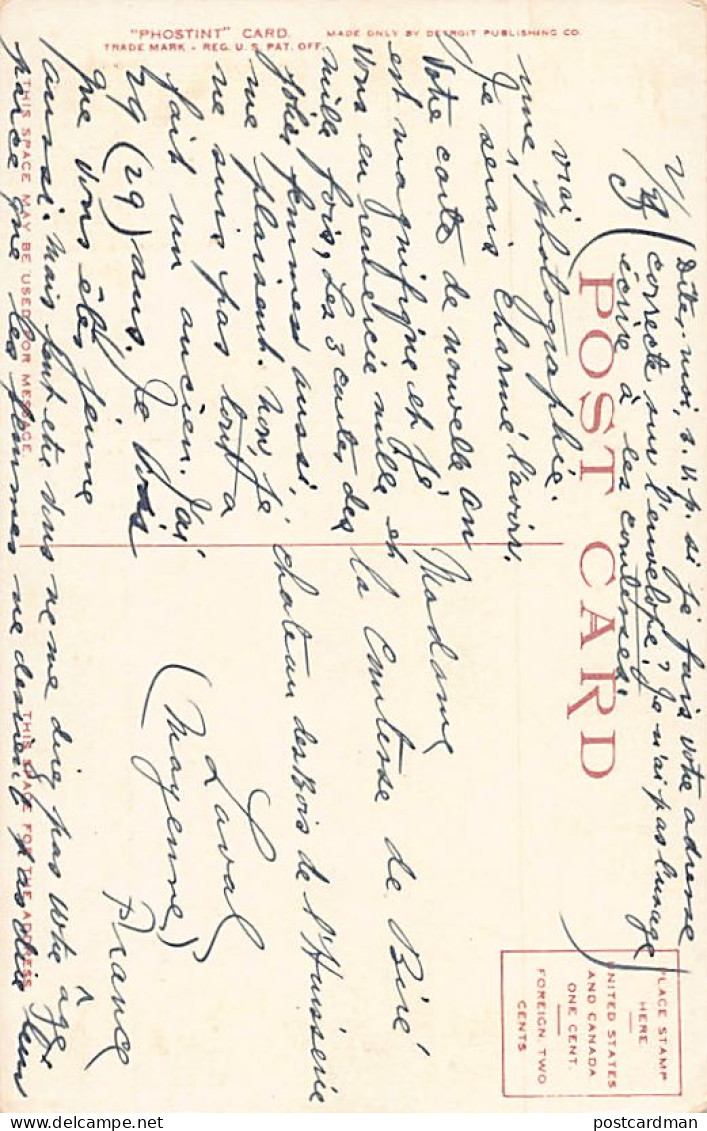 "PHOSTINT" CARD.
TRADE MARK - REG. U. S. PAT. OFF.
MADE ONLY BY DETROIT PUBLISHING CO.
POST CARD
THIS SPACE MAY BE USED FOR MESSAGE
THIS SPACE FOR THE ADDRESS
PLACE STAMP
HERE
UNITED STATES
AND CANADA
ONE CENT.
FOREIGN, TWO
CENTS
(Dites-moi, s.v.p. si je fais votre adresse
correcte sur l'envelope? Je n'ai pas l'usage
écrire à les comtesses!)
vrai
une photographie.
Je serais charmé l'avoir.
Votre carte de nouvelle an
est magnifique et je
vous en remercie mille et
mille fois, Les 3 cartes des
jolies femmes aussi,
me plaisent. Non, je
ne suis pas tout a
fait un ancien. J'ai
29 (29) ans. Je vois
que vous êtes jeune
aussi. Mais peut etre vous ne me direz pas votre âge
parce que les femmes ne desirent pas dire leur
Madame
la Comtesse de Biré
chateau des Bois de l'Huisserie
Laval
(Mayenne)
France
postcardman